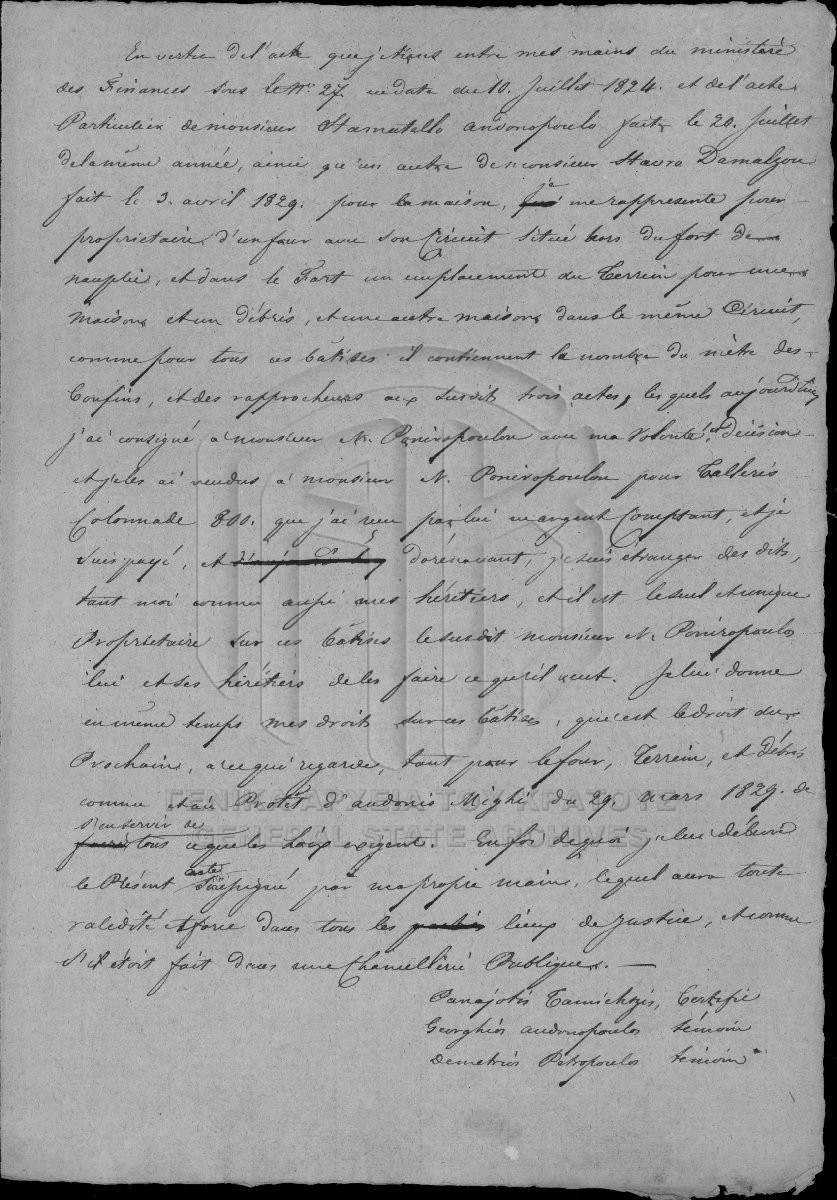 En vertu de l'acte que j'tiens entre mes mains du ministère
des Finances sous le No. 27. en date du 10. Juillet 1824. et de l'acte
Particulier de monsieur Stamatello andonopoulo fait le 20. Juillet
de la même année, ainsi qu'un autre de monsieur Stavro Damalzou
fait le 3. avril 1829. pour la maison, je me rappresente pour
propriétaire d'un four avec son Circuit situé hors du fort de
nauplie, et dans le Fort un emplacement du Terrein pour une
maison et un débris, et une autre maison dans le même Circuit,
comme pour tous ces bâtises il contiennent la nombre du mètre des
Confins, et des rapprocheurs aux susdits trois actes, les quels aujourd'hui
j'ai consigné a monsieur N. Poniropoulou avec ma volonté, et Décision
et je les ai vendus a monsieur N. Poniropoulou pour Talleris
Colonnade 800. que j'ai reçu par lui en argent Comptant, et je
suis payé, et dorénavant, je suis étranger des dits,
tant moi comme aussi mes héritiers, et il est le seul et unique
Propriétaire sur ces bâtises le susdit monsieur N. Poniropoulo
lui et ses héritiers de les faire ce qu'il veut. Je lui donne
en même temps mes droits sur ces bâtises, qui est le droit du
Prochain, a ce qui regarde, tant pour le four, Terrein, et débris
comme et au Protêt d'andonis Mighi du 29. mars 1829. de
s'en servir se
tous ce que les Loix exigent. En foi de quoi je lui délivre
le Présent acte souscigné par ma propre maine, lequel aura toute
validité et force dans tous les lieux de Justice, et comme
s'il étoit fait dans une Chancellerie Publique. —
Panajotis Certifie
Georghios andonopoulos témoin
Demetrios Petropoulos témoin
ΓΕΝΙΚΑ ΑΡΧΕΙΑ ΤΟΥ ΚΡΑΤΟΥΣ
GENERAL STATE ARCHIVES